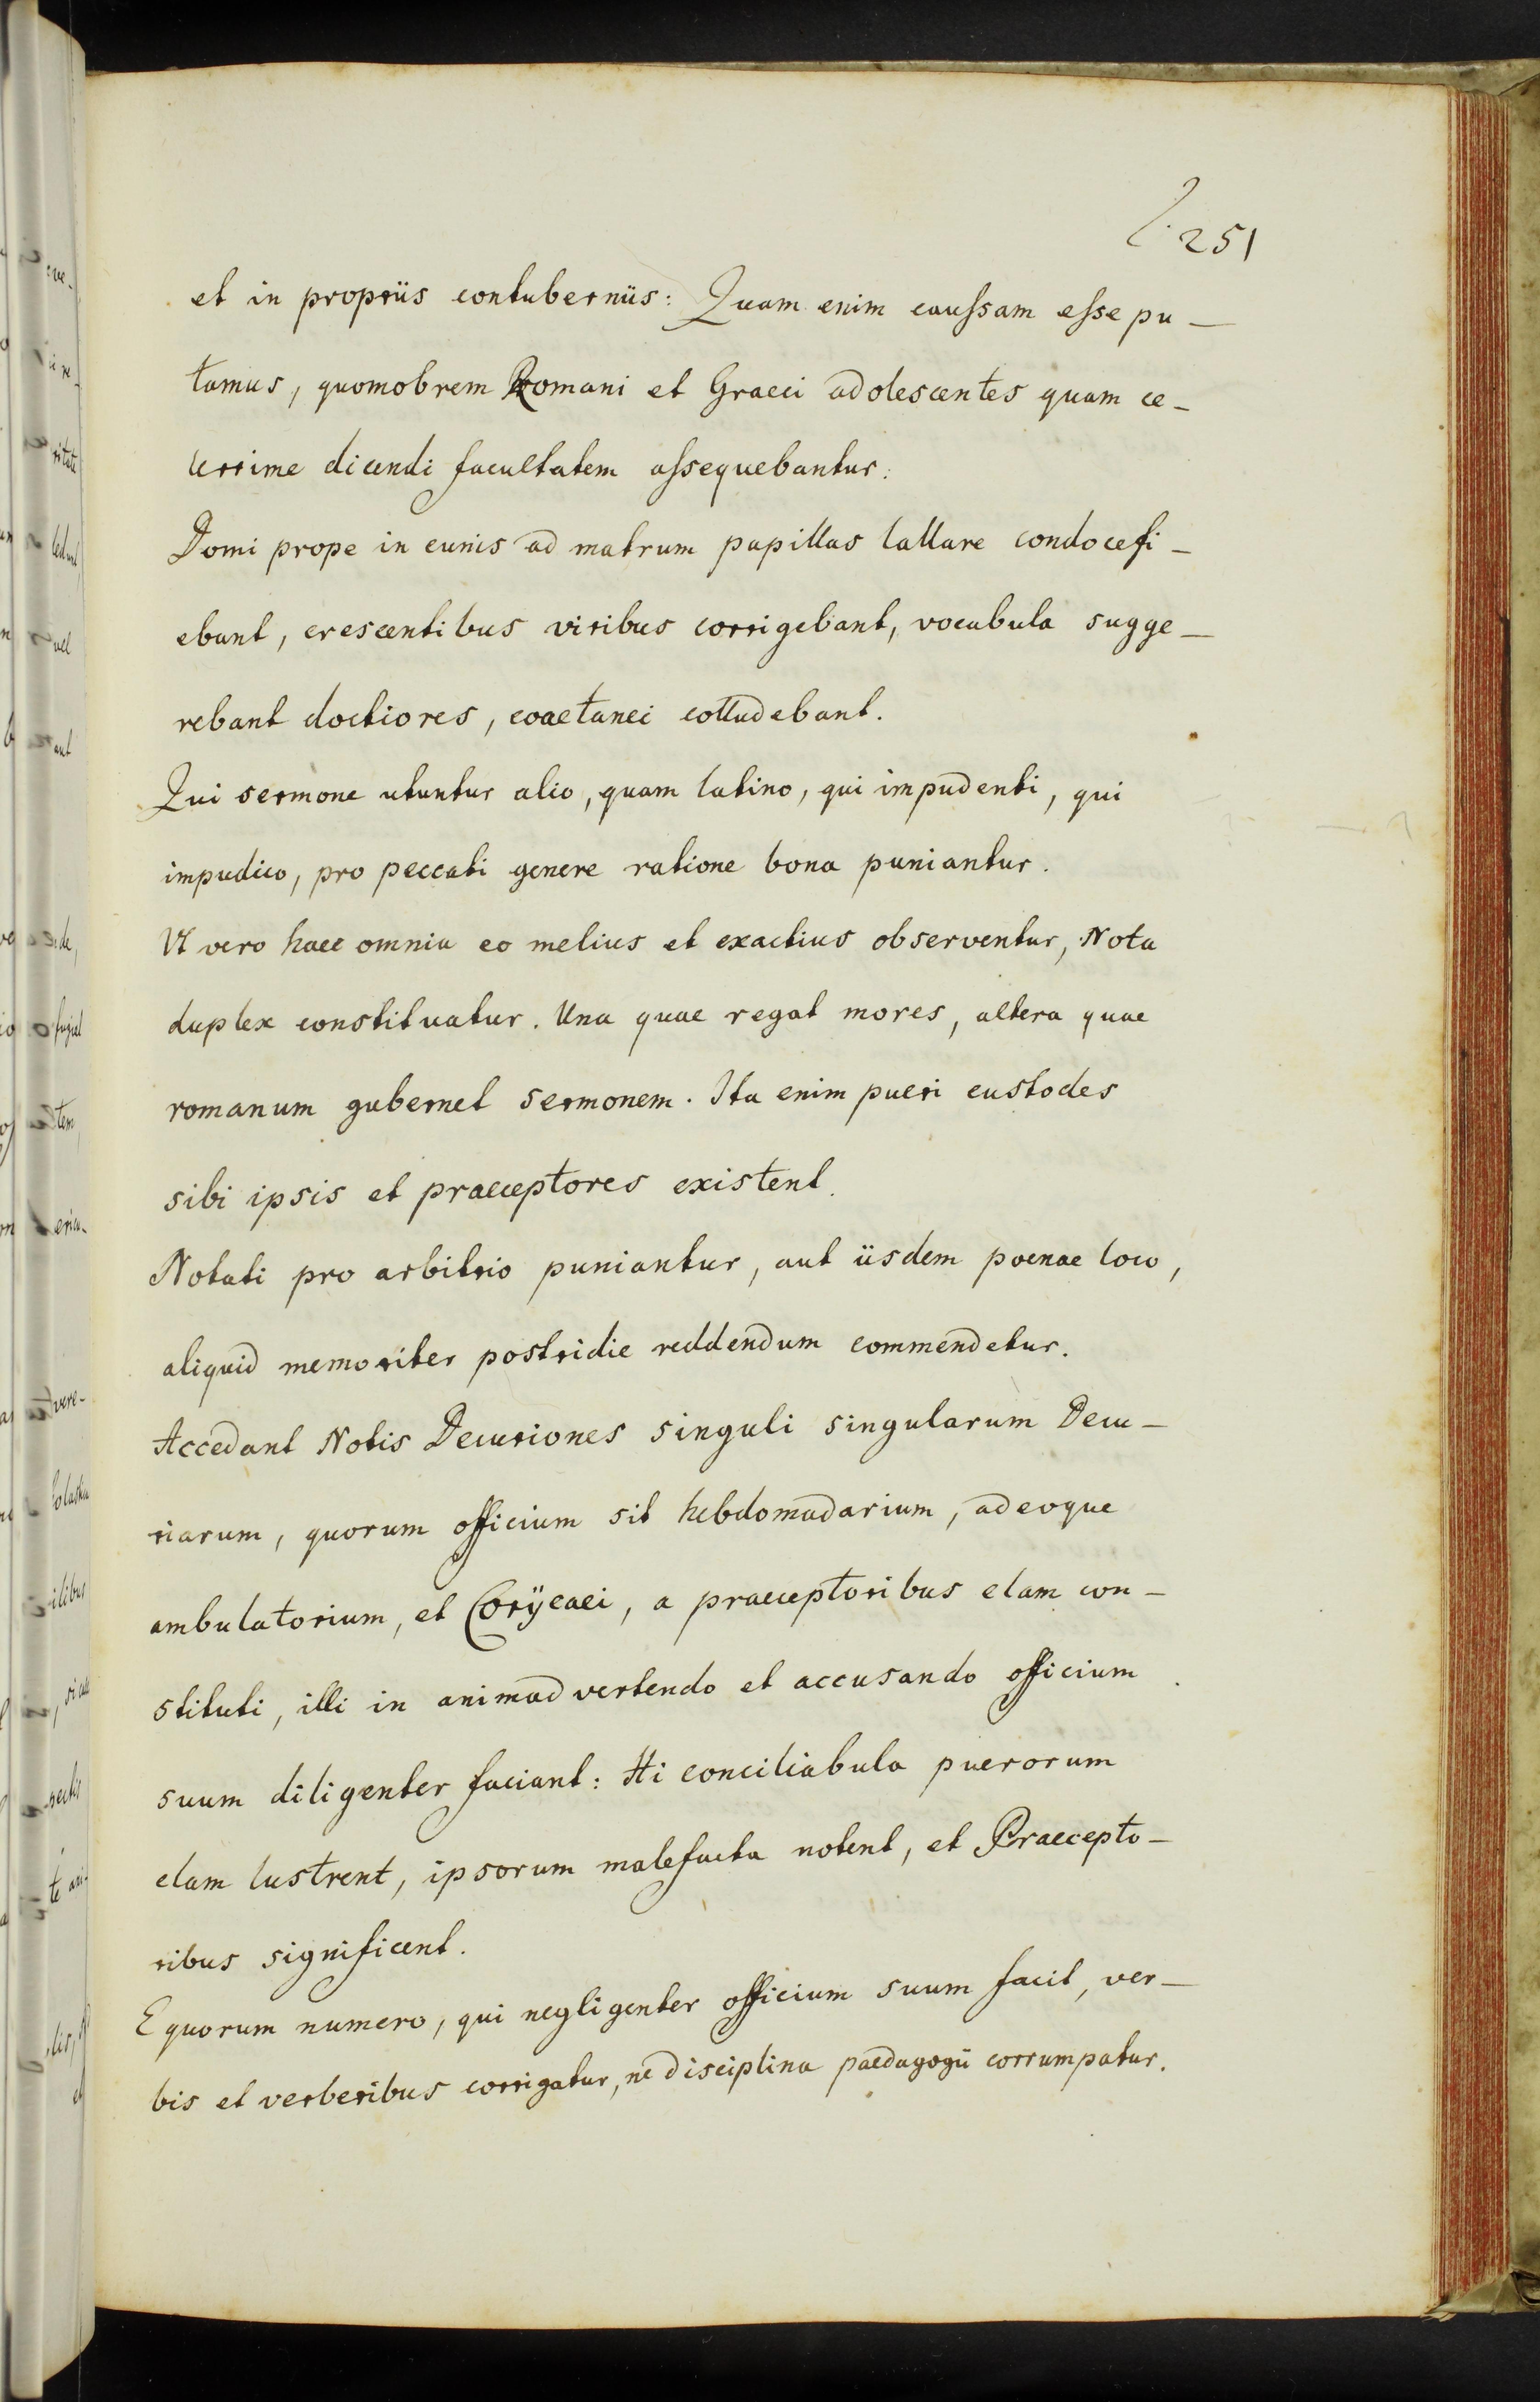 251
et in propriis contuberniis: Quam enim caussam esse pu-
tamus, quamobrem Romani et Graeci adolescentes quam ce-
lerrime dicendi facultatem assequebantur:
Domi prope in cunis ad matrum papillas lallare condocefi-
ebant, crescentibus viribus corrigebant, vocabula sugge-
rebant doctiores, coaetanei colludebant.
Qui sermone utuntur alio, quam latino, qui impudenti, qui
impudico, pro peccati genere ratione bona puniantur.
Vt vero haec omnia eo melius et exactius observentur, Nota
duplex constituatur. Una quae regat mores, altera quae
romanum gubernet sermonem. Ita enim pueri custodes
sibi ipsis et praeceptores existent.
Notati pro arbitrio puniantur, aut iisdem poenae loco,
aliquid memoriter postridie reddendum commendetur.
Accedant Notis Decuriones singuli singularum Decu-
riarum, quorum officium sit hebdomadarium, adeoque
ambulatorium, et Corÿcaei, a praeceptoribus clam con-
stituti, illi in animadvertendo et accusando officium
suum diligenter faciant: Hi conciliabula puerorum
clam lustrent, ipsorum malefacta notent, et Praecepto-
ribus significent.
E quorum numero, qui negligenter officium suum facit, ver-
bis et verberibus corrigatur, ne disciplina paedagogii corrumpatur.